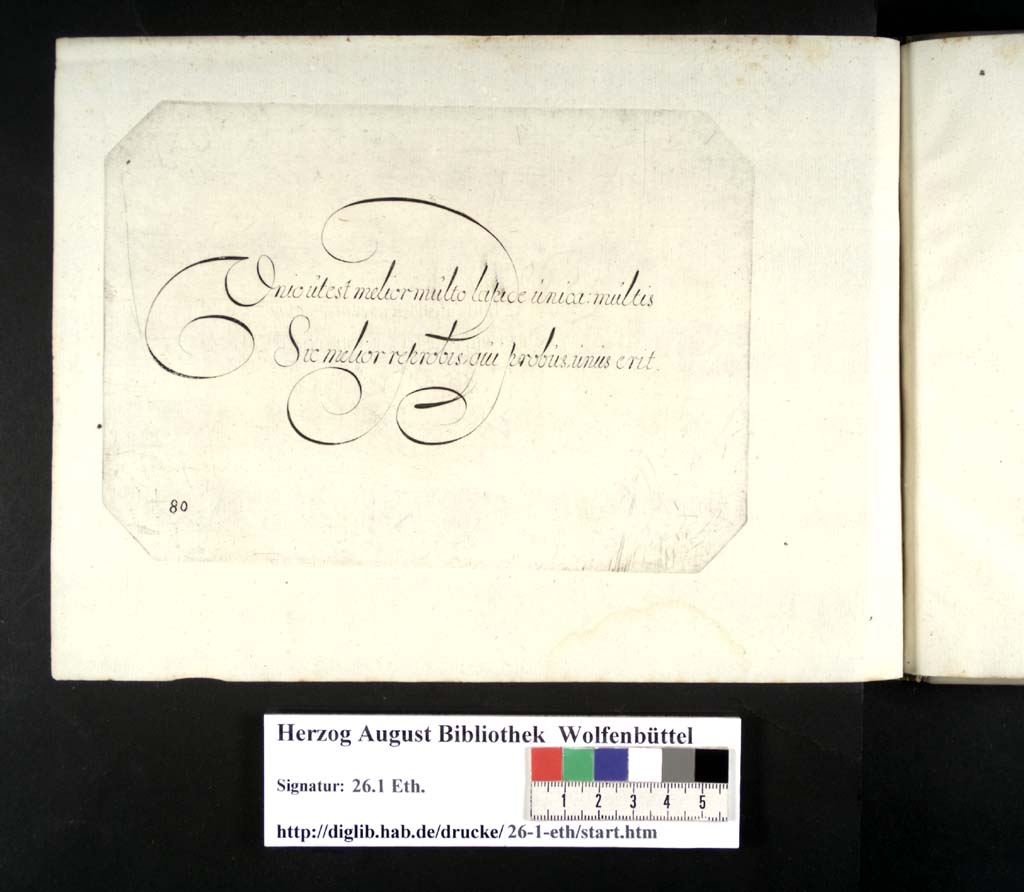 Onio út est melior múlto lapide única múltis
Sic melior reprobis, qúi probús únús erit.
80
Herzog August Bibliothek Wolfenbüttel
Signatur: 26.1 Eth.
1 2 3 4 5
http://diglib.hab.de/drucke/26-1-eth/start.htm